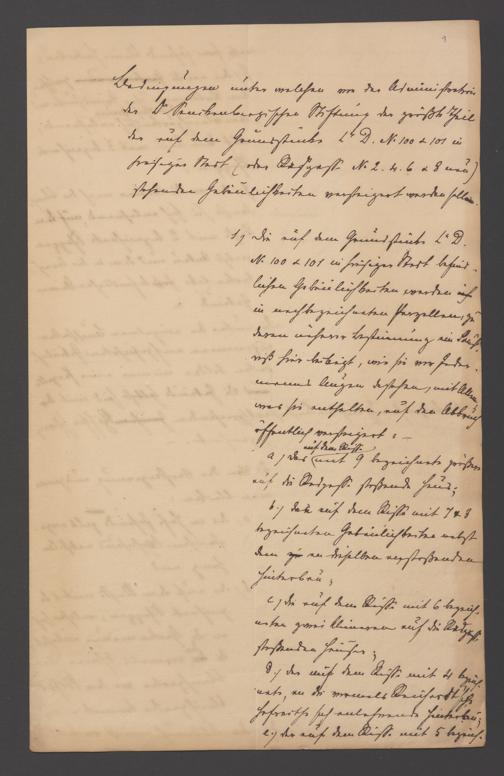 Bedingungen unter welchen von der Administration
der Dr Senckenbergischen Stiftung der größte Theil
der auf dem Grundstücke La D. No 100 & 101 in
hiesiger Stadt (oder Radgasse No 2. 4. 6 & 8 neu)
stehenden Gebäulichkeiten versteigert werden sollen.
1.) Die auf dem Grundstücke La D.
No 100 & 101 in hiesiger Stadt befind-
lichen Gebäulichkeiten werden
in nachbezeichneten Parzellen, zu
deren näherer Bestimmung ein
riß hier beiliegt, wie sie vor Jeder-
manns Augen dastehen, mit Allem
was sie enthalten, auf den Abbruch
öffentlich versteigert: –
auf dem Risse
a.) das mit 9 bezeichnete größere
auf die Radgasse stoßende Haus;
b.) die auf dem Risse mit 7 & 8
bezeichneten Gebäulichkeiten nebst
dem an dieselben anstoßenden
Hinterbau;
c.) die auf dem Risse mit 6 bezeich-
neten zwei kleineren auf die Radgasse
stoßenden Häuser;
d.) der auf dem Risse mit 4 bezeich-
nete, an die vormals
sich anlehnende Hinterbau;
e.) der auf dem Risse mit 5 bezeich-